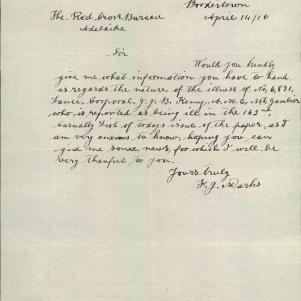 Bordertown
The Red Cross Bureau April 14/16
Adelaide
Sir
Would you kindly
give me what information you have to hand
as regards the nature of the illness of No 6,871,
Lance, Corporal, J. J. B. Kenny, A.M.C. Mt Gambier
who is reported as being ill in the 162nd,
Casualty List of todays issue of the paper, as I
am very anxious to know, hoping you can
give me some news, for which I will be
very thankful to you.
Yours truly
F. J. Marks